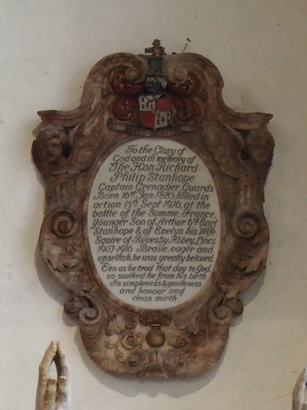 To the Glory of
God and in memory of
The Hon Richard
Philip Stanhope
Captain Grenadier Guards
Born 16th Jan 1885. Killed in
action 15th Sept 1916, at the
battle of the Somme, France,
Younger Son of Arthur 6th Earl
Stanhope & of Evelyn his Wife
Squire of Revesby Abbey, Lincs
1907-1916 Brave, eager and
unselfish, he was greatly beloved.
E'en as he trod that day to God,
so walked he from his birth
In simpleness & gentleness
and honour and
clean mirth